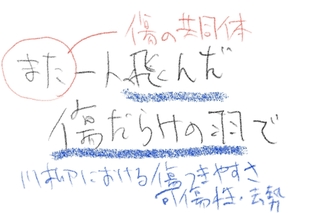 傷の共同体
また一人飛んだ
傷だらけの羽で
川柳における傷つきやすさ
可傷性・去勢